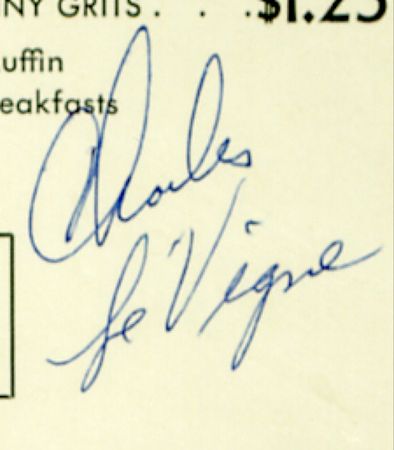 NY GRITS . . . $1.25
uffin
eakfasts
Charles
Le Vigne